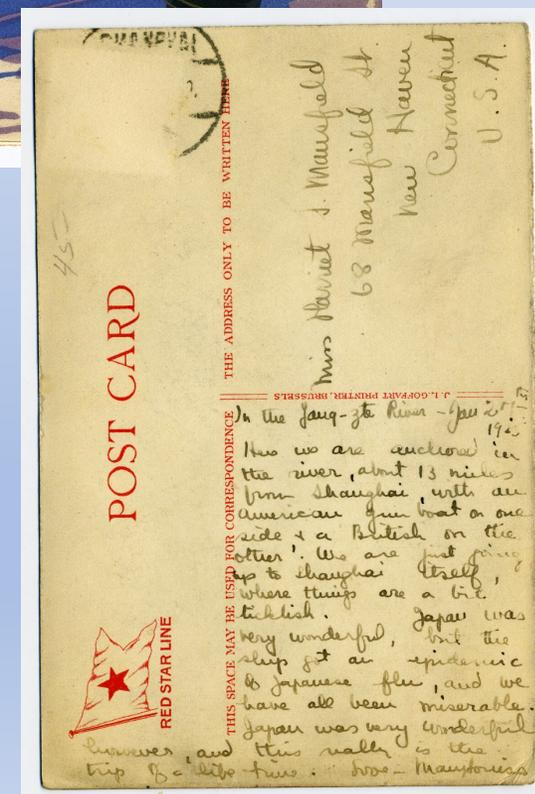 SHANGHAI
45-
POST CARD
RED STAR LINE
THIS SPACE MAY BE USED FOR CORRESPONDENCE
THE ADDRESS ONLY TO BE WRITTEN HERE
J. L. GOFFART PRINTER, BRUSSELS
Miss Harriet S. Mansfield
68 Mansfield St.
New Haven
Connecticut
U.S.A.
In the Yang-zte River - Jan
Here we are anchored in
the river, about 13 miles
from Shanghai, with an
American gun boat on one
side & a British on the
other! We are just going
up to Shanghai itself,
where things are a bit
ticklish. Japan was
very wonderful, but the
ship got an epidemic
of Japanese flu, and we
have all been miserable.
Japan was very wonderful
however, and this really is the
trip of a life time. Love -